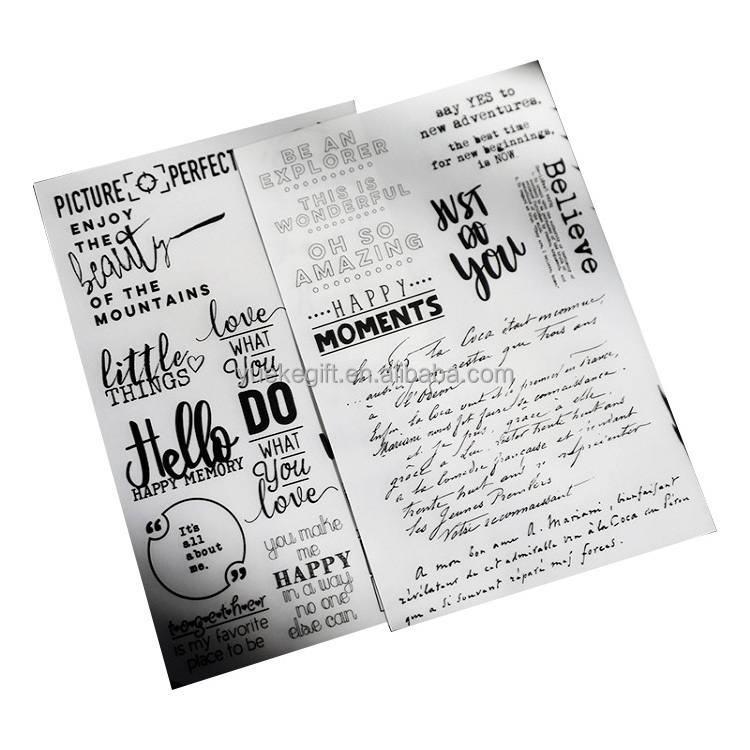 PICTURE PERFECT
ENJOY
THE
beauty
OF THE
MOUNTAINS
little
THINGS
love
WHAT
you
DO
WHAT
you
love
Hello
HAPPY MEMORY
“
It's
all
about
me.
”
you make
me
HAPPY
in a way
no one
else can
together
is my favorite
place to be
BE AN
EXPLORER
THIS IS
WONDERFUL
OH SO
AMAZING
....HAPPY....
MOMENTS
say YES to
new adventures.
the best time
for new beginnings,
is NOW.
JUST
DO
YOU
Believe
la Coca était inconnue,
que trois ans
Odéon
Enfin, la Coca vint et le premier en France,
Mariani nous fit faire sa connaissance.
et je puis, grâce à elle,
trente huit ans
à la Comédie française et pendant
trente huit ans représenter
les Jeunes Premiers
Votre reconnaissant
A mon bon ami A. Mariani, bienfaisant
révélateur de cet admirable vin à la Coca du Pérou
qui a si souvent réparé mes forces.
yiiekegift.en.alibaba.com